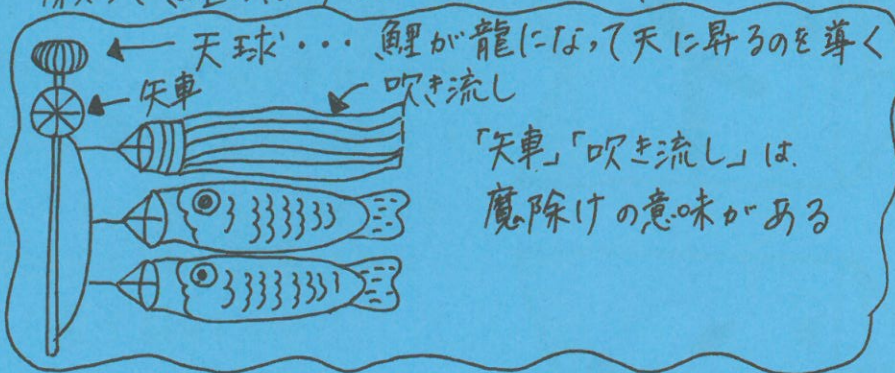 天球・・・鯉が龍になって天に昇るのを導く
矢車
吹き流し
「矢車」「吹き流し」は
魔除けの意味がある